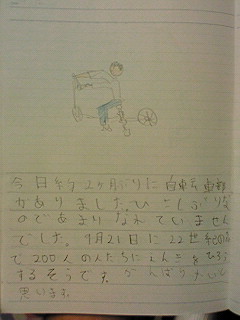 今日約2ヶ月ぶりに自転車部
がありました。ひさしぶりな
のであまりなれていません
でした。9月21日に22世紀の
で200人の人たちに えんぎをひろう
するそうです。がんばりたいと
思います。